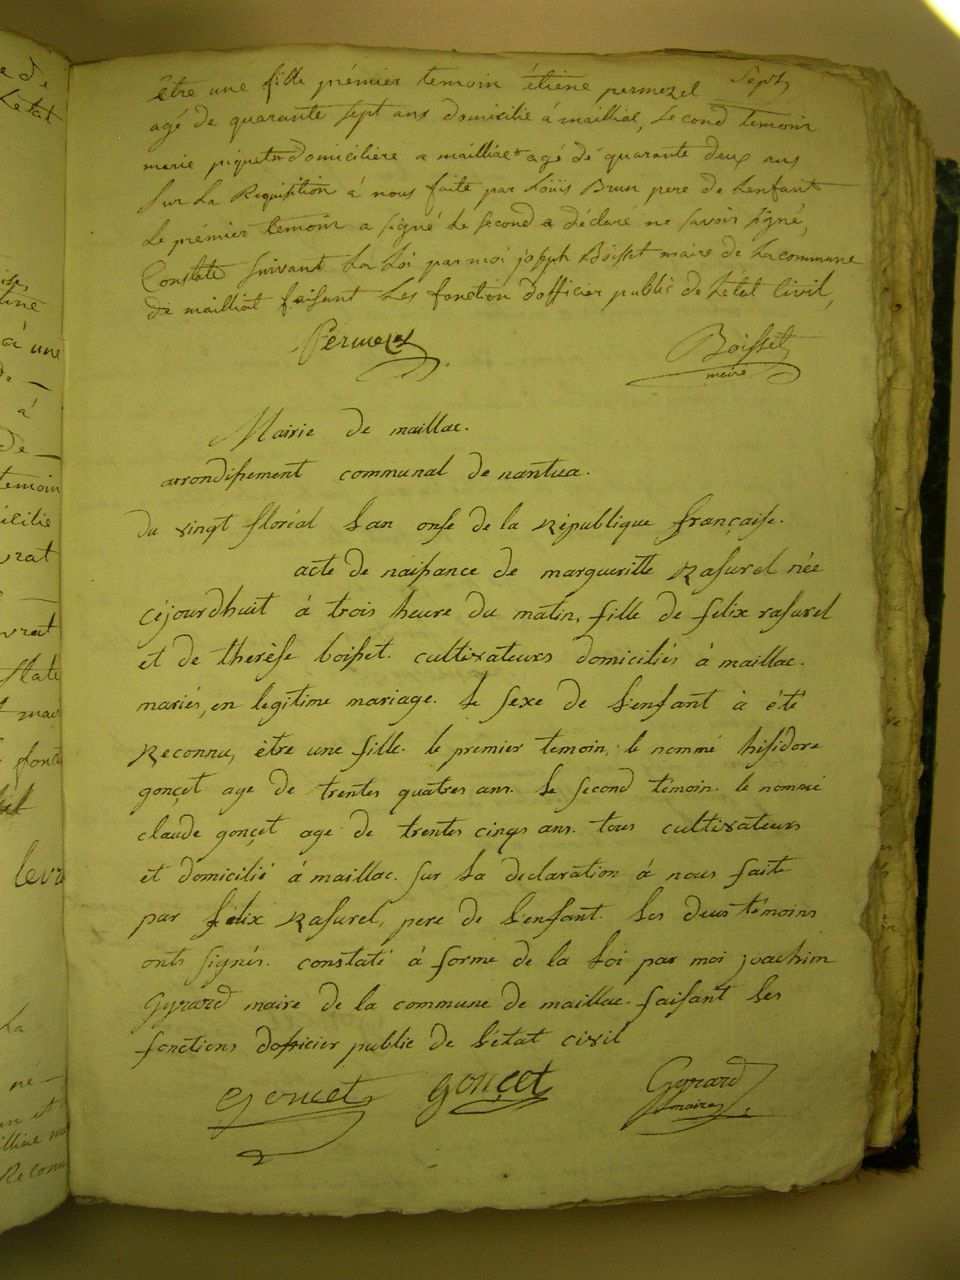 être une fille prémier temoin étiene permezel Sept
agé de quarante sept ans domicilié à mailliat, second temoin
marie piquet domiciliere a mailliat agé de quarante deux ans
sur La Requisition à nous faite par Loüis Brun pere de Lenfant
Le prémier temoin a signé Le second a déclaré ne savoir signé,
Constaté suivant La Loi par moi joseph Boisset maire de La commune
de mailliat faisant Les fonction dofficier public de Létat Civil,
Permezel Boisset
maire
Mairie de maillac.
arrondissement communal de nantua.
Du vingt floréal Lan onse de la République française.
acte de naissance de margueritte Rasurel née
céjourdhuit à trois heure du matin, fille de felix rasurel
et de therèse boisset. cultivateurs domiciliés à maillac.
mariés, en legitime mariage. Le sexe de L'enfant à été
Reconnu, être une fille. le premier temoin, le nommé hisidore
gonçet age de trentes quatres ans. Le second témoin. le nommé
claude gonçet age de trentes cinqs ans. tous cultivateurs
et domicilié à maillac. sur La declaration à nous faite
par félix Rasurel, pere de L'enfant. Les deus témoins
onts signés. constaté à forme de la Loi par moi joachim
Gyrard maire de la commune de maillac. faisant Les
fonctions dofficier public de L'état civil
goncet gonçet Gyrard
maire